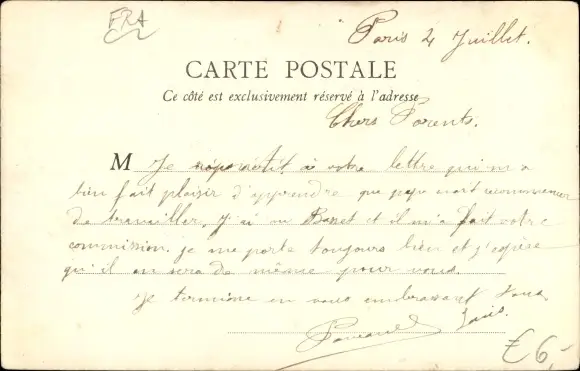 FRA
Paris 4 Juillet.
CARTE POSTALE
Ce côté est exclusivement réservé à l'adresse
Chers Parents.
M Je à votre lettre qui m'a
bien fait plaisir d'apprendre que papa avait recommencer
de travailler. J'ai vu Banet et il m'a fait votre
commission. je me porte toujours bien et j'espère
qu'il en sera de même pour vous.
Je termine en vous embrassant tous.
€ 6,-